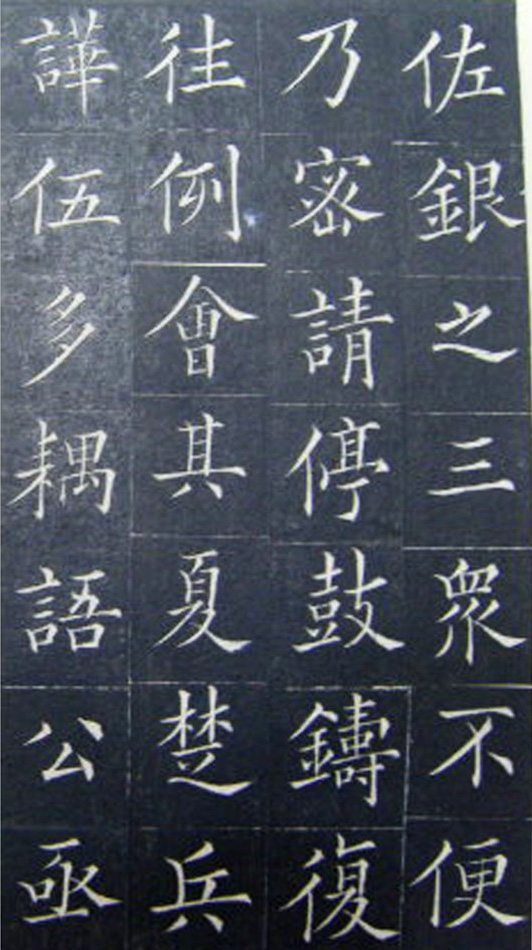 佐銀之三衆不便
乃密請停鼓鑄復
往例會其夏楚兵
譁伍多耦語公亟